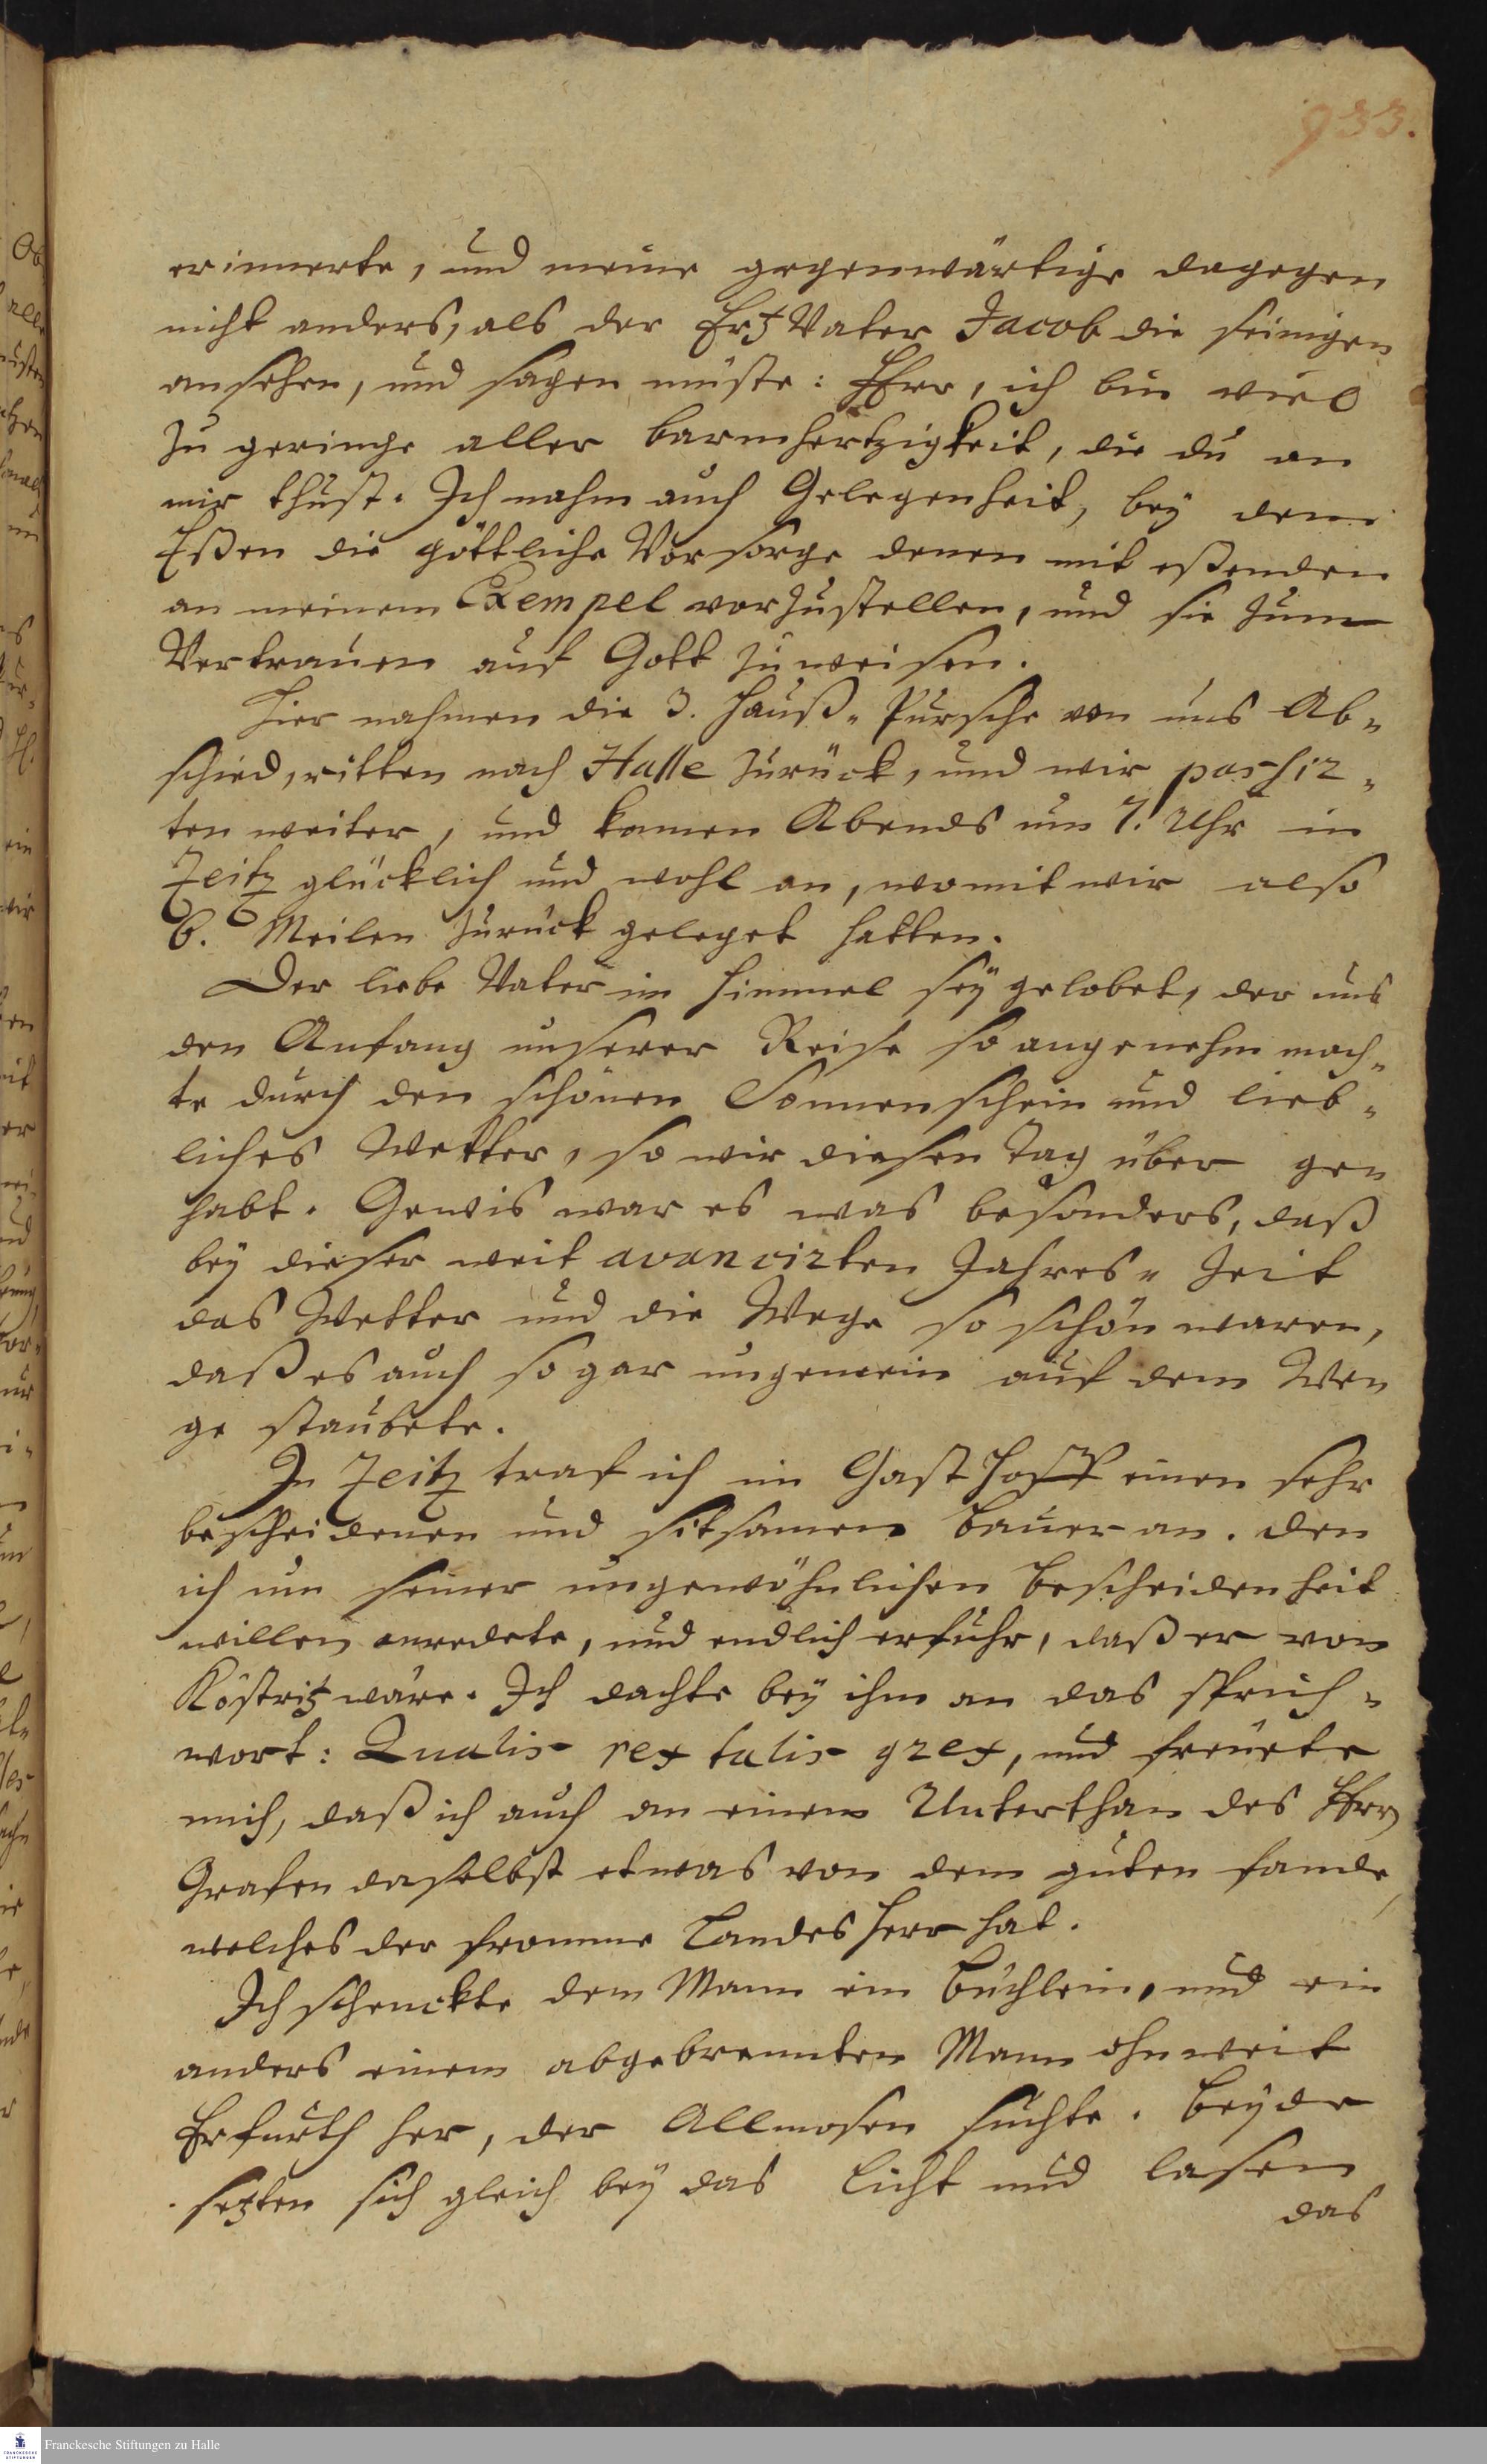 933.
erinnerte, und meine gegenwärtige dagegen
nicht anders, als der ErtzVater Jacob die seinigen
ansehen, und sagen müste: HErr, ich bin viel
zu geringe aller barmhertzigkeit, die du an
mir thust. Ich nahm auch Gelegenheit, bey dem
Eßen die göttliche Vorsorge denen mit eßenden
an meinem Exempel vorzustellen, und sie zum
Vertrauen auf Gott zu weisen.
Hier nahmen die 3. Hauß-Pursche von uns Ab-
schied, ritten nach Halle zurück, und wir passir-
ten weiter, und kamen Abends um 7. Uhr in
Zeitz glücklich und wohl an, womit wir also
6. Meilen zurück geleget hatten.
Der liebe Vater im Himmel sey gelobet, der uns
den Anfang unserer Reise so angenehm mach-
te durch den schönen Sonnenschein und lieb-
liches Wetter, so wir diesen Tag über ge-
habt. Gewis war es was besonders, daß
bey dieser weit avancirten Jahres-Zeit
das Wetter und die Wege so schön waren,
daß es auch so gar ungemein auf dem We-
ge staubete.
In Zeitz traf ich im Gasthoff einen sehr
bescheidenen und sitsamen Bauer an. den
ich um seiner ungewöhnlichen Bescheidenheit
willen anredete, und endlich erfuhr, daß er von
Köstritz wäre. Ich dachte bey ihm an das Sprüch-
wort: Qualis rex talis grex, und freuete
mich, daß ich auch an einem Unterthan des HErrn
Grafen daselbst etwas von dem guten fande,
welches der fromme Landes Herr hat.
Ich schenckte dem Mann ein Büchlein, und ein
anders einem abgebrennten Mann ohnweit
Erfurth her, der Allmosen suchte. Beyde
setzten sich gleich bey das Licht und lasen
das
Franckesche Stiftungen zu Halle